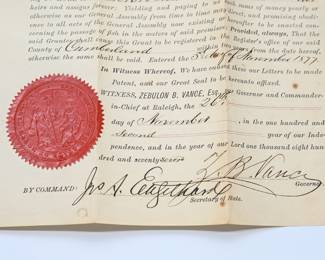 heirs and assigns forever. Yielding and paying to us
otherwise as our General Assembly from time to time may direct
ence to all acts of the General Assembly now existing or hereafter to be enacted con-
cerning the passage of fish in the waters of said premises. Provided, always, That the
said Grantee shall cause this Grant to be registered in the Register's office of our said
County of Cumberland within two years from the date hereof,
otherwise the same shall be void. Entered the 5th day of November 1877.
In Witness Whereof, We have caused these our Letters to be made
Patent, and our Great Seal to be hereunto affixed.
WITNESS, ZEBULON B. VANCE, Esq., our Governor and Commander-
in-Chief at Raleigh, the 26th
day of November in the one hundred and
Second year of our Inde-
pendence, and in the year of our Lord one thousand eight hundred
and seventy seven
Z. B. Vance
Governor
BY COMMAND: Jos A. Engelhard
Secretary of State.